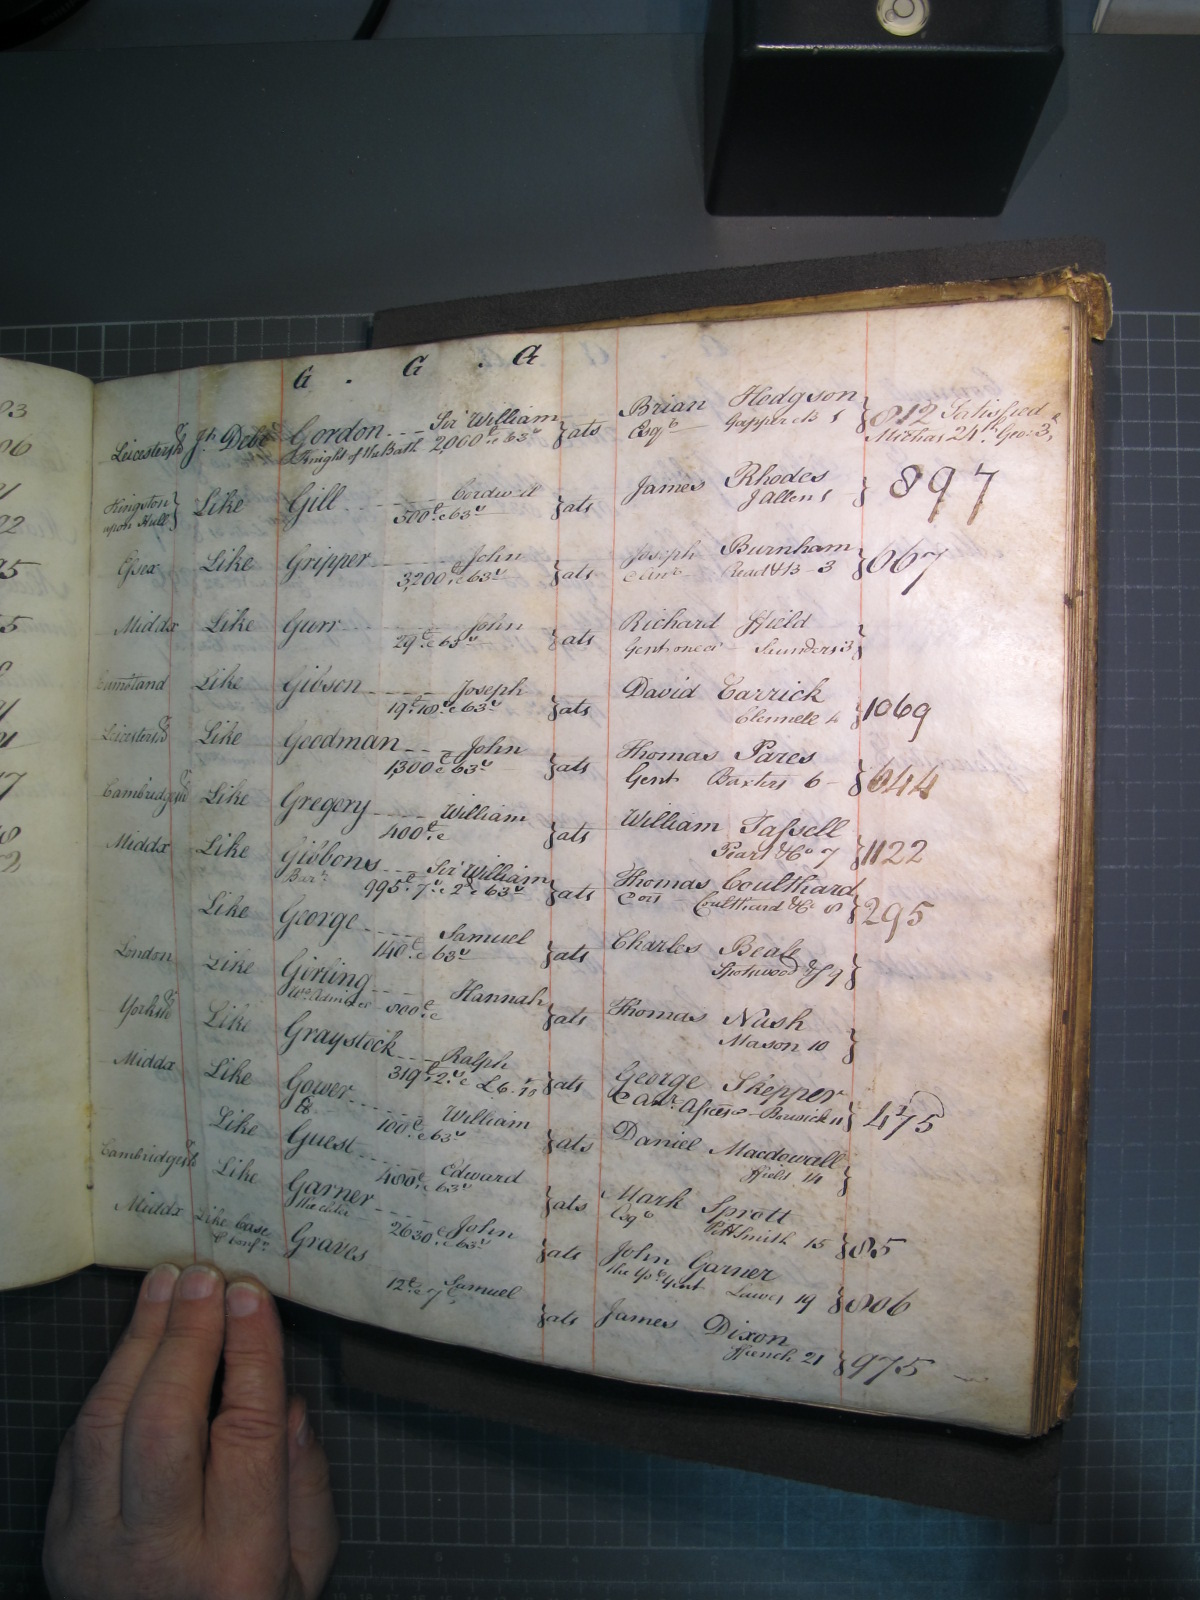 G . G . G
Leicestersh Jt. Debt Gordon Sir William } ats Brian Hodgson } 812 Satisfied
Knight of the Bath 2,060£ & 63s Esqr 1 Michas 24th Geo: 3d
Kingston upon Hull } Like Gill } ats James Rhodes } 897
500£ & 63s J Allen 1
Essex Like Gripper John } ats Joseph Burnham } 667
3,200£ & 63s 3
Middx Like Gurr John } ats Richard ffield }
29£ & 63s Gent one &c Saunders 3
Like Gibson Joseph } ats David Carrick } 1069
& 63s Clennell 4
Leicestersh Like Goodman John } ats Thomas Pares } 644
1,300£ & 63s Gent Baxters 6
Cambridgesh Like Gregory William } ats William Tassell } 1122
400£ & Peart & Co 7
Middx Like Gibbons Sir William } ats Thomas Coulthard } 295
Bart 995£ 7s & 2d & 63s Coulthard & Co 8
Like George Samuel } ats Charles Beale }
140£ & 63s 9
London Like Girling Hannah } ats Thomas Nash }
Wo Admix &c 800£ & Mason 10
Yorksh Like Graystock Ralph } ats George Skepper } 475
319£ 2s & £6.10 Berwick 11
Middx Like Gower William } ats Daniel Macdowall }
100£ & 63s ffield 14
Like Guest Edward } ats Mark Sprott } 85
480£ & 63s Esqr Smith 15
Cambridgesh Like Garner John } ats John Garner } 806
the elder 2630£ & 63s the yor Gent Lawes 19
Middx Like Graves Samuel } ats James Dixon } 975
12£ & ffrench 21